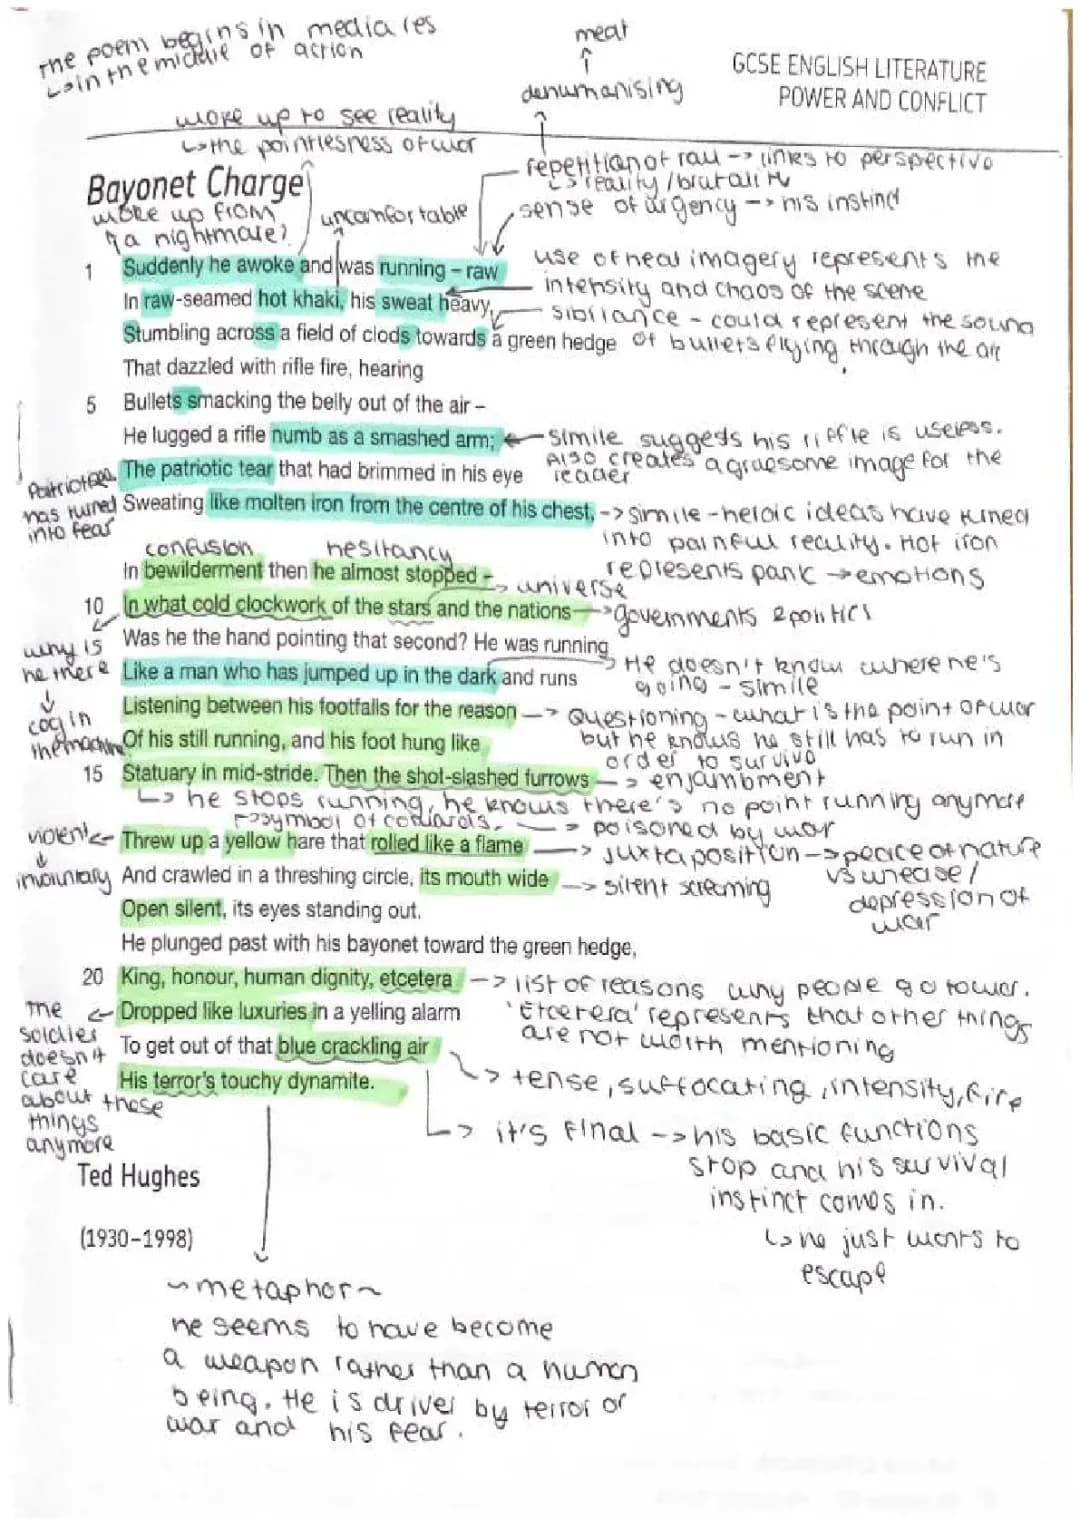 The poem begins in media res
↳ in the middle of action
meat
↑
dehumanising
GCSE ENGLISH LITERATURE
POWER AND CONFLICT
woke up to see reality
↳ the pointlesness of war
repetition of raw -> links to perspective
↳ reality / brutality
Bayonet Charge
woke up from
a nightmare?
uncomfortable
sense of urgency -> his instinct
1 Suddenly he awoke and was running – raw
use of heat imagery represents the
In raw-seamed hot khaki, his sweat heavy,
intensity and chaos of the scene
Stumbling across a field of clods towards a green hedge
sibilance - could represent the sound
of bullets flying through the air
That dazzled with rifle fire, hearing
5 Bullets smacking the belly out of the air –
He lugged a rifle numb as a smashed arm;
simile suggests his riffle is useless.
Also creates a gruesome image for the
reader
The patriotic tear that had brimmed in his eye
has turned
into fear
Sweating like molten iron from the centre of his chest,
-> simile - heroic ideas have turned
into painful reality. Hot iron
represents panic -> emotions
confusion hesitancy
In bewilderment then he almost stopped –
universe
10 In what cold clockwork of the stars and the nations
governments & politics
Was he the hand pointing that second? He was running
why is
he there
↓
cog in
the machine
Like a man who has jumped up in the dark and runs
He doesn't know where he's
going - simile
Listening between his footfalls for the reason
-> Questioning - what is the point of war
but he knows he still has to run in
order to survive
Of his still running, and his foot hung like
15 Statuary in mid-stride. Then the shot-slashed furrows
-> enjambment
↳ he stops running, he knows there's no point running anymore
symbol of cowards.
-> poisoned by war
violent
↓
involuntary
Threw up a yellow hare that rolled like a flame
-> juxtaposition -> peace of nature
vs unease /
depression of
war
And crawled in a threshing circle, its mouth wide
-> silent screaming
Open silent, its eyes standing out.
He plunged past with his bayonet toward the green hedge,
20 King, honour, human dignity, etcetera
-> list of reasons why people go to war.
'Etcetera' represents that other things
are not worth mentioning
Dropped like luxuries in a yelling alarm
The
soldier
doesn't
care
about these
things
anymore
To get out of that blue crackling air
-> tense, suffocating, intensity, fire
His terror's touchy dynamite.
-> it's final -> his basic functions
stop and his survival
instinct comes in.
↳ he just wants to
escape
Ted Hughes
(1930–1998)
~metaphor~
he seems to have become
a weapon rather than a human
being. He is driven by terror of
war and his fear.